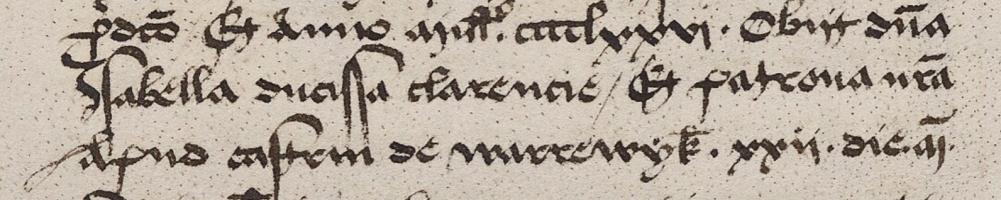 p̄dcō Et Anno mill̄o. cccclxxvi. Obiit dn̄a
Isabella ducissa clarencie / Et patrona nrā
Apud castrm̄ de warrewyk̄. xxii. die. m̄.